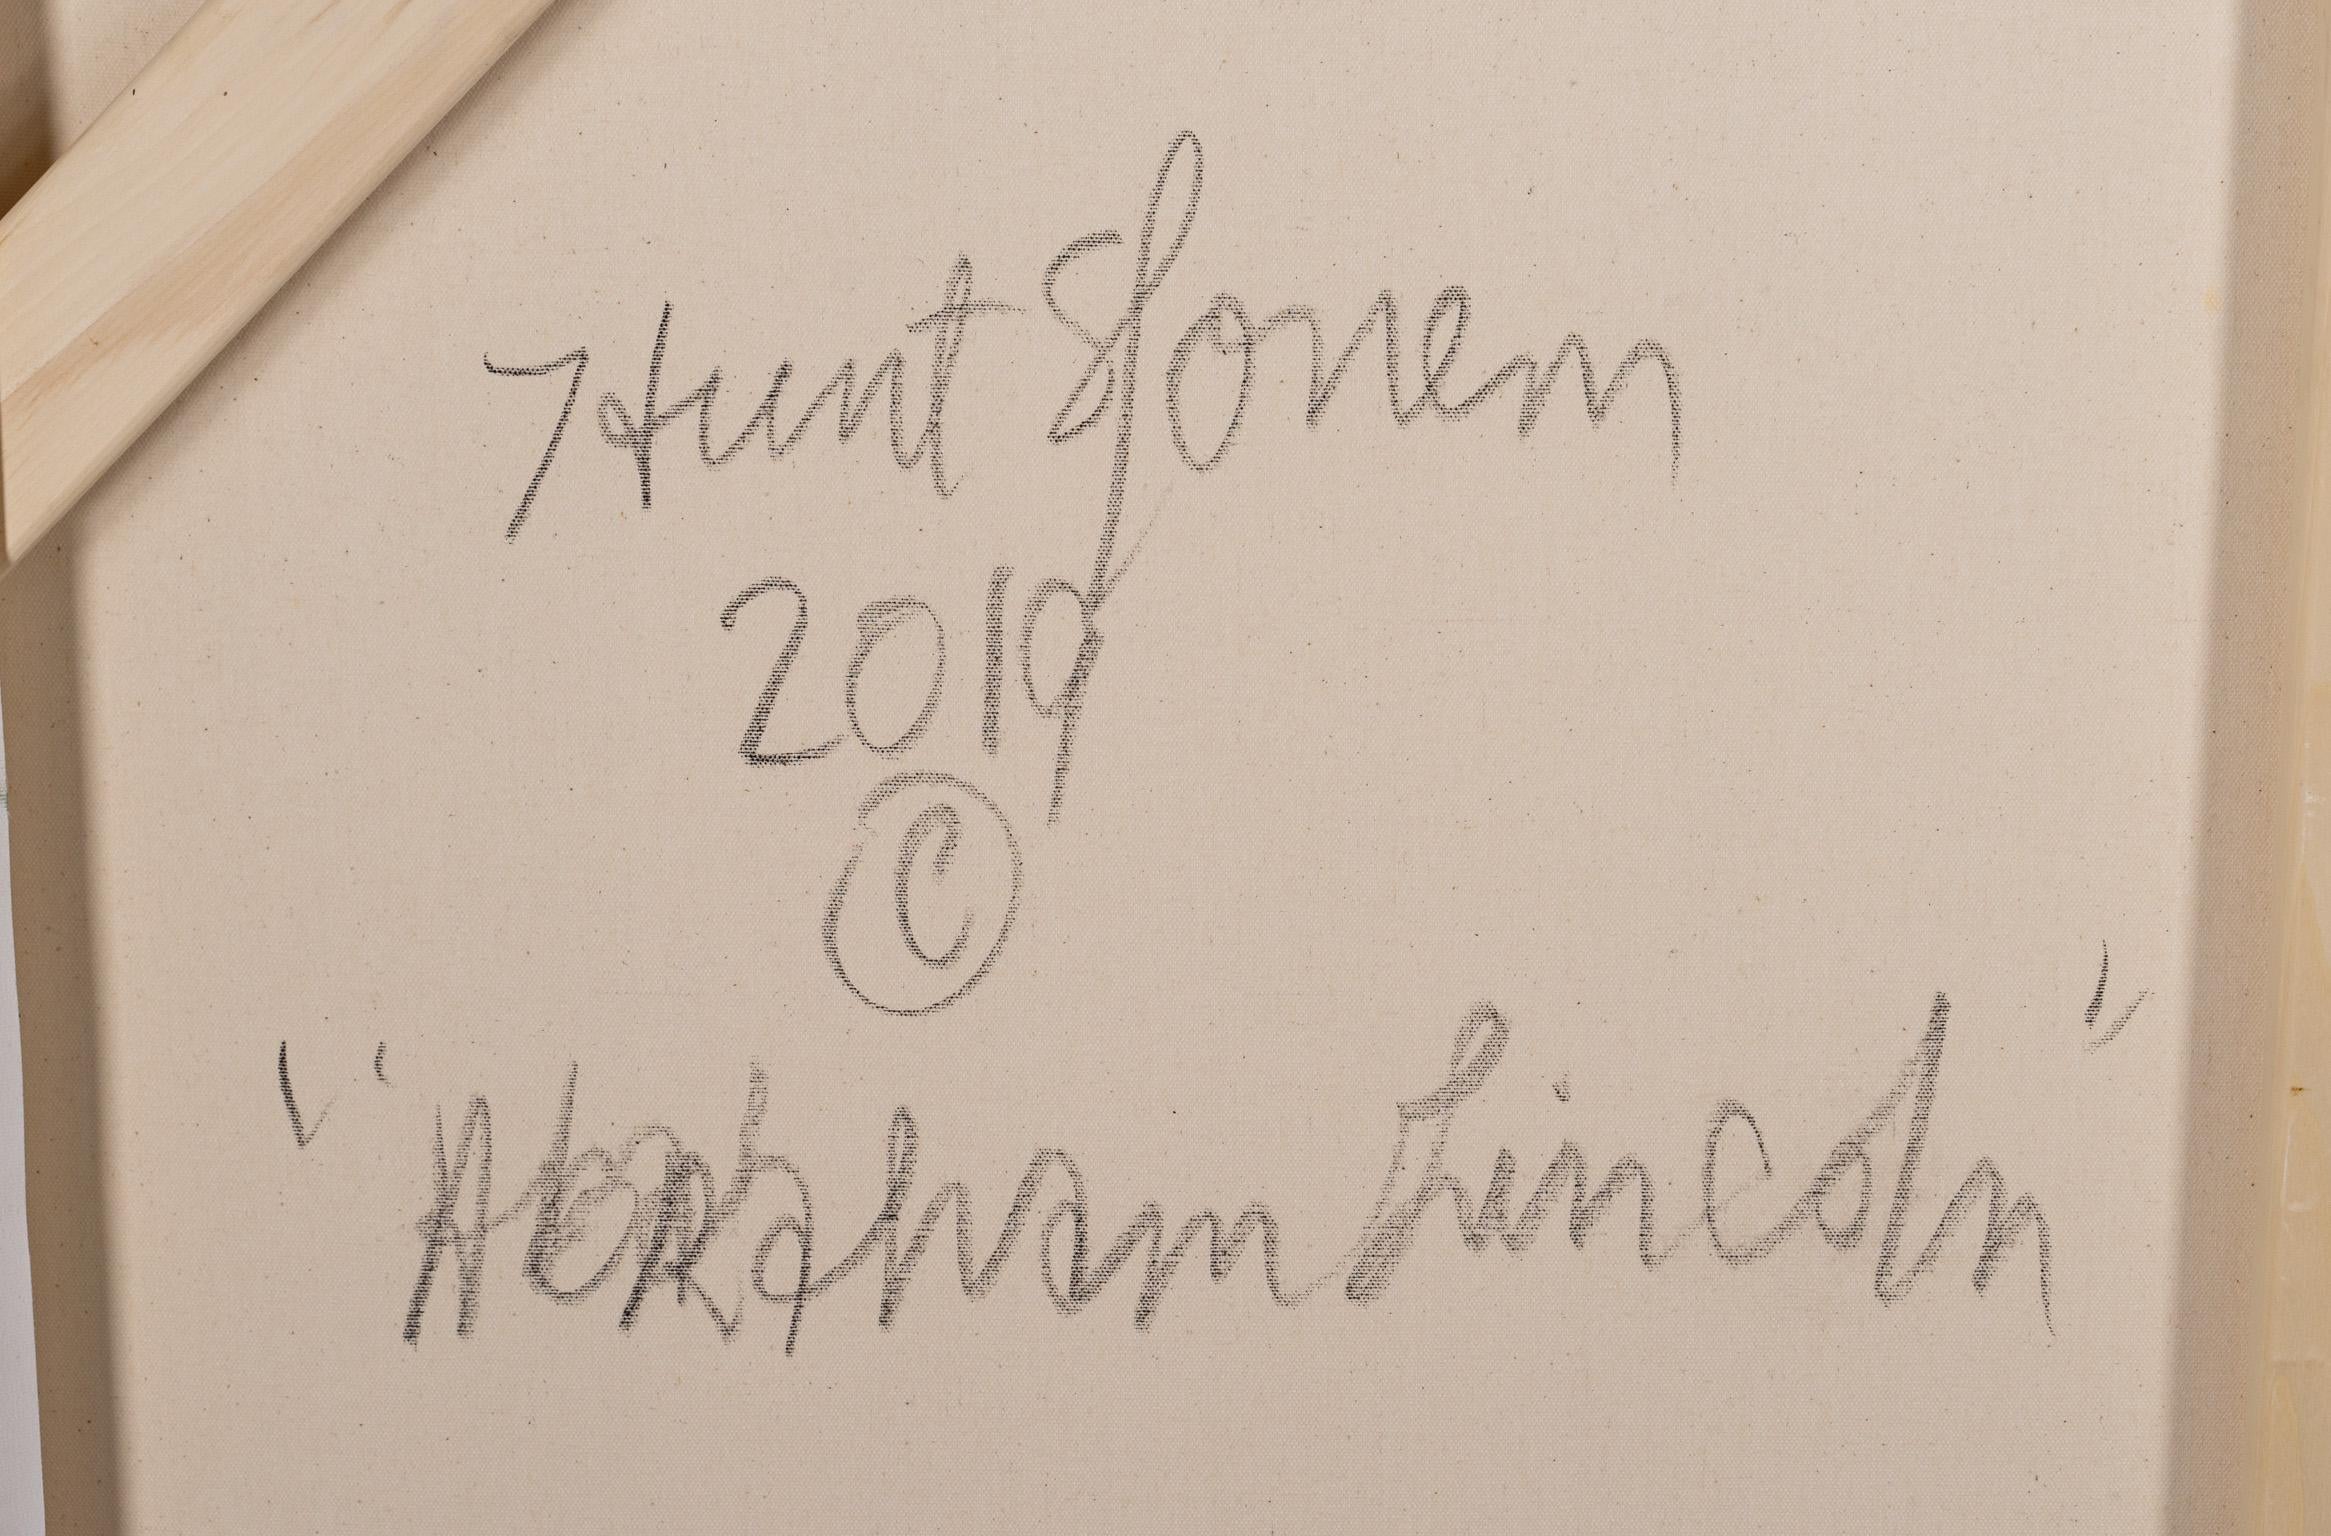 Hunt Slonem
2019
©
"Abraham Lincoln"